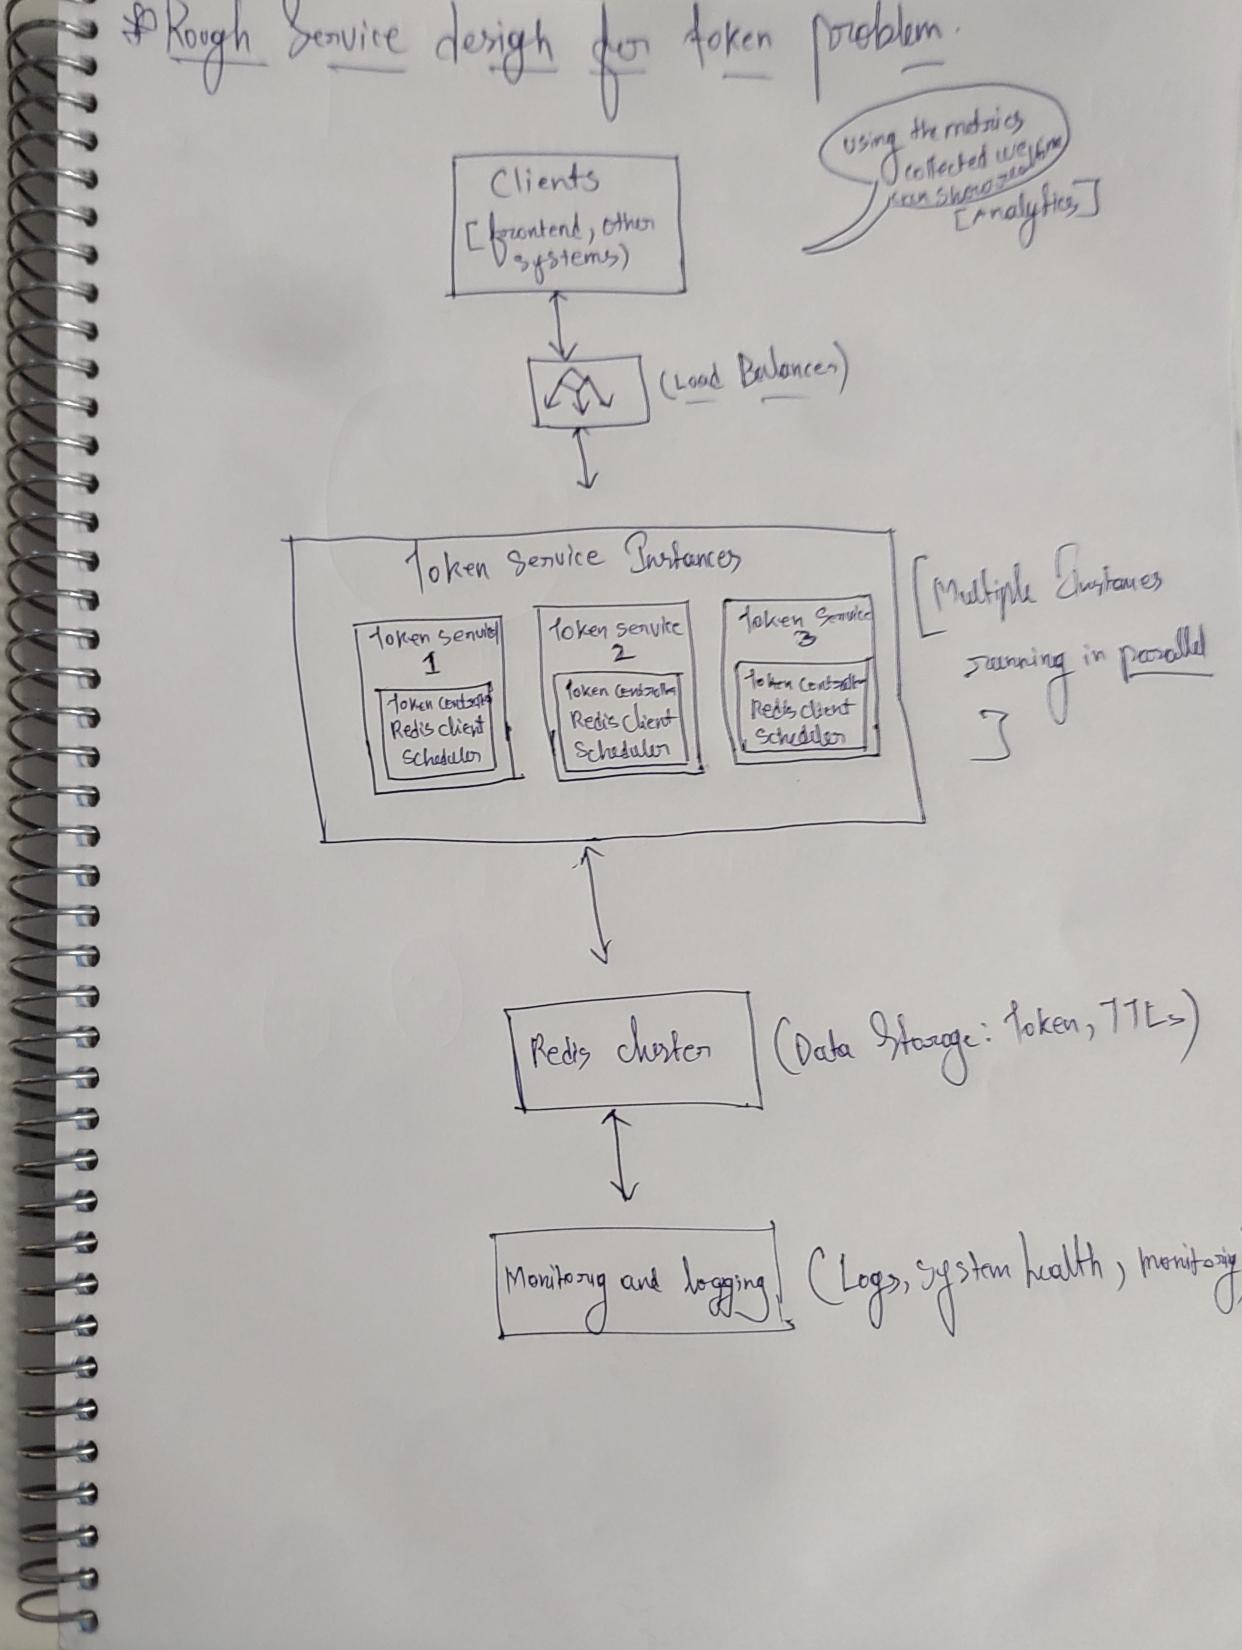 Rough Service design for token problem.
using the metrics
collected we
can show realtime
[Analytics]
Clients
[frontend, other
systems)
(Load Balancer)
Token Service Instances
[Multiple Instances
running in parallel
]
Token service
1
Token Controller
Redis client
Scheduler
Token service
2
Token Controller
Redis client
Scheduler
Token Service
3
Token Controller
Redis client
Scheduler
Redis cluster
(Data Storage: Token, TTLs)
Monitoring and logging
(Logs, system health, monitoring